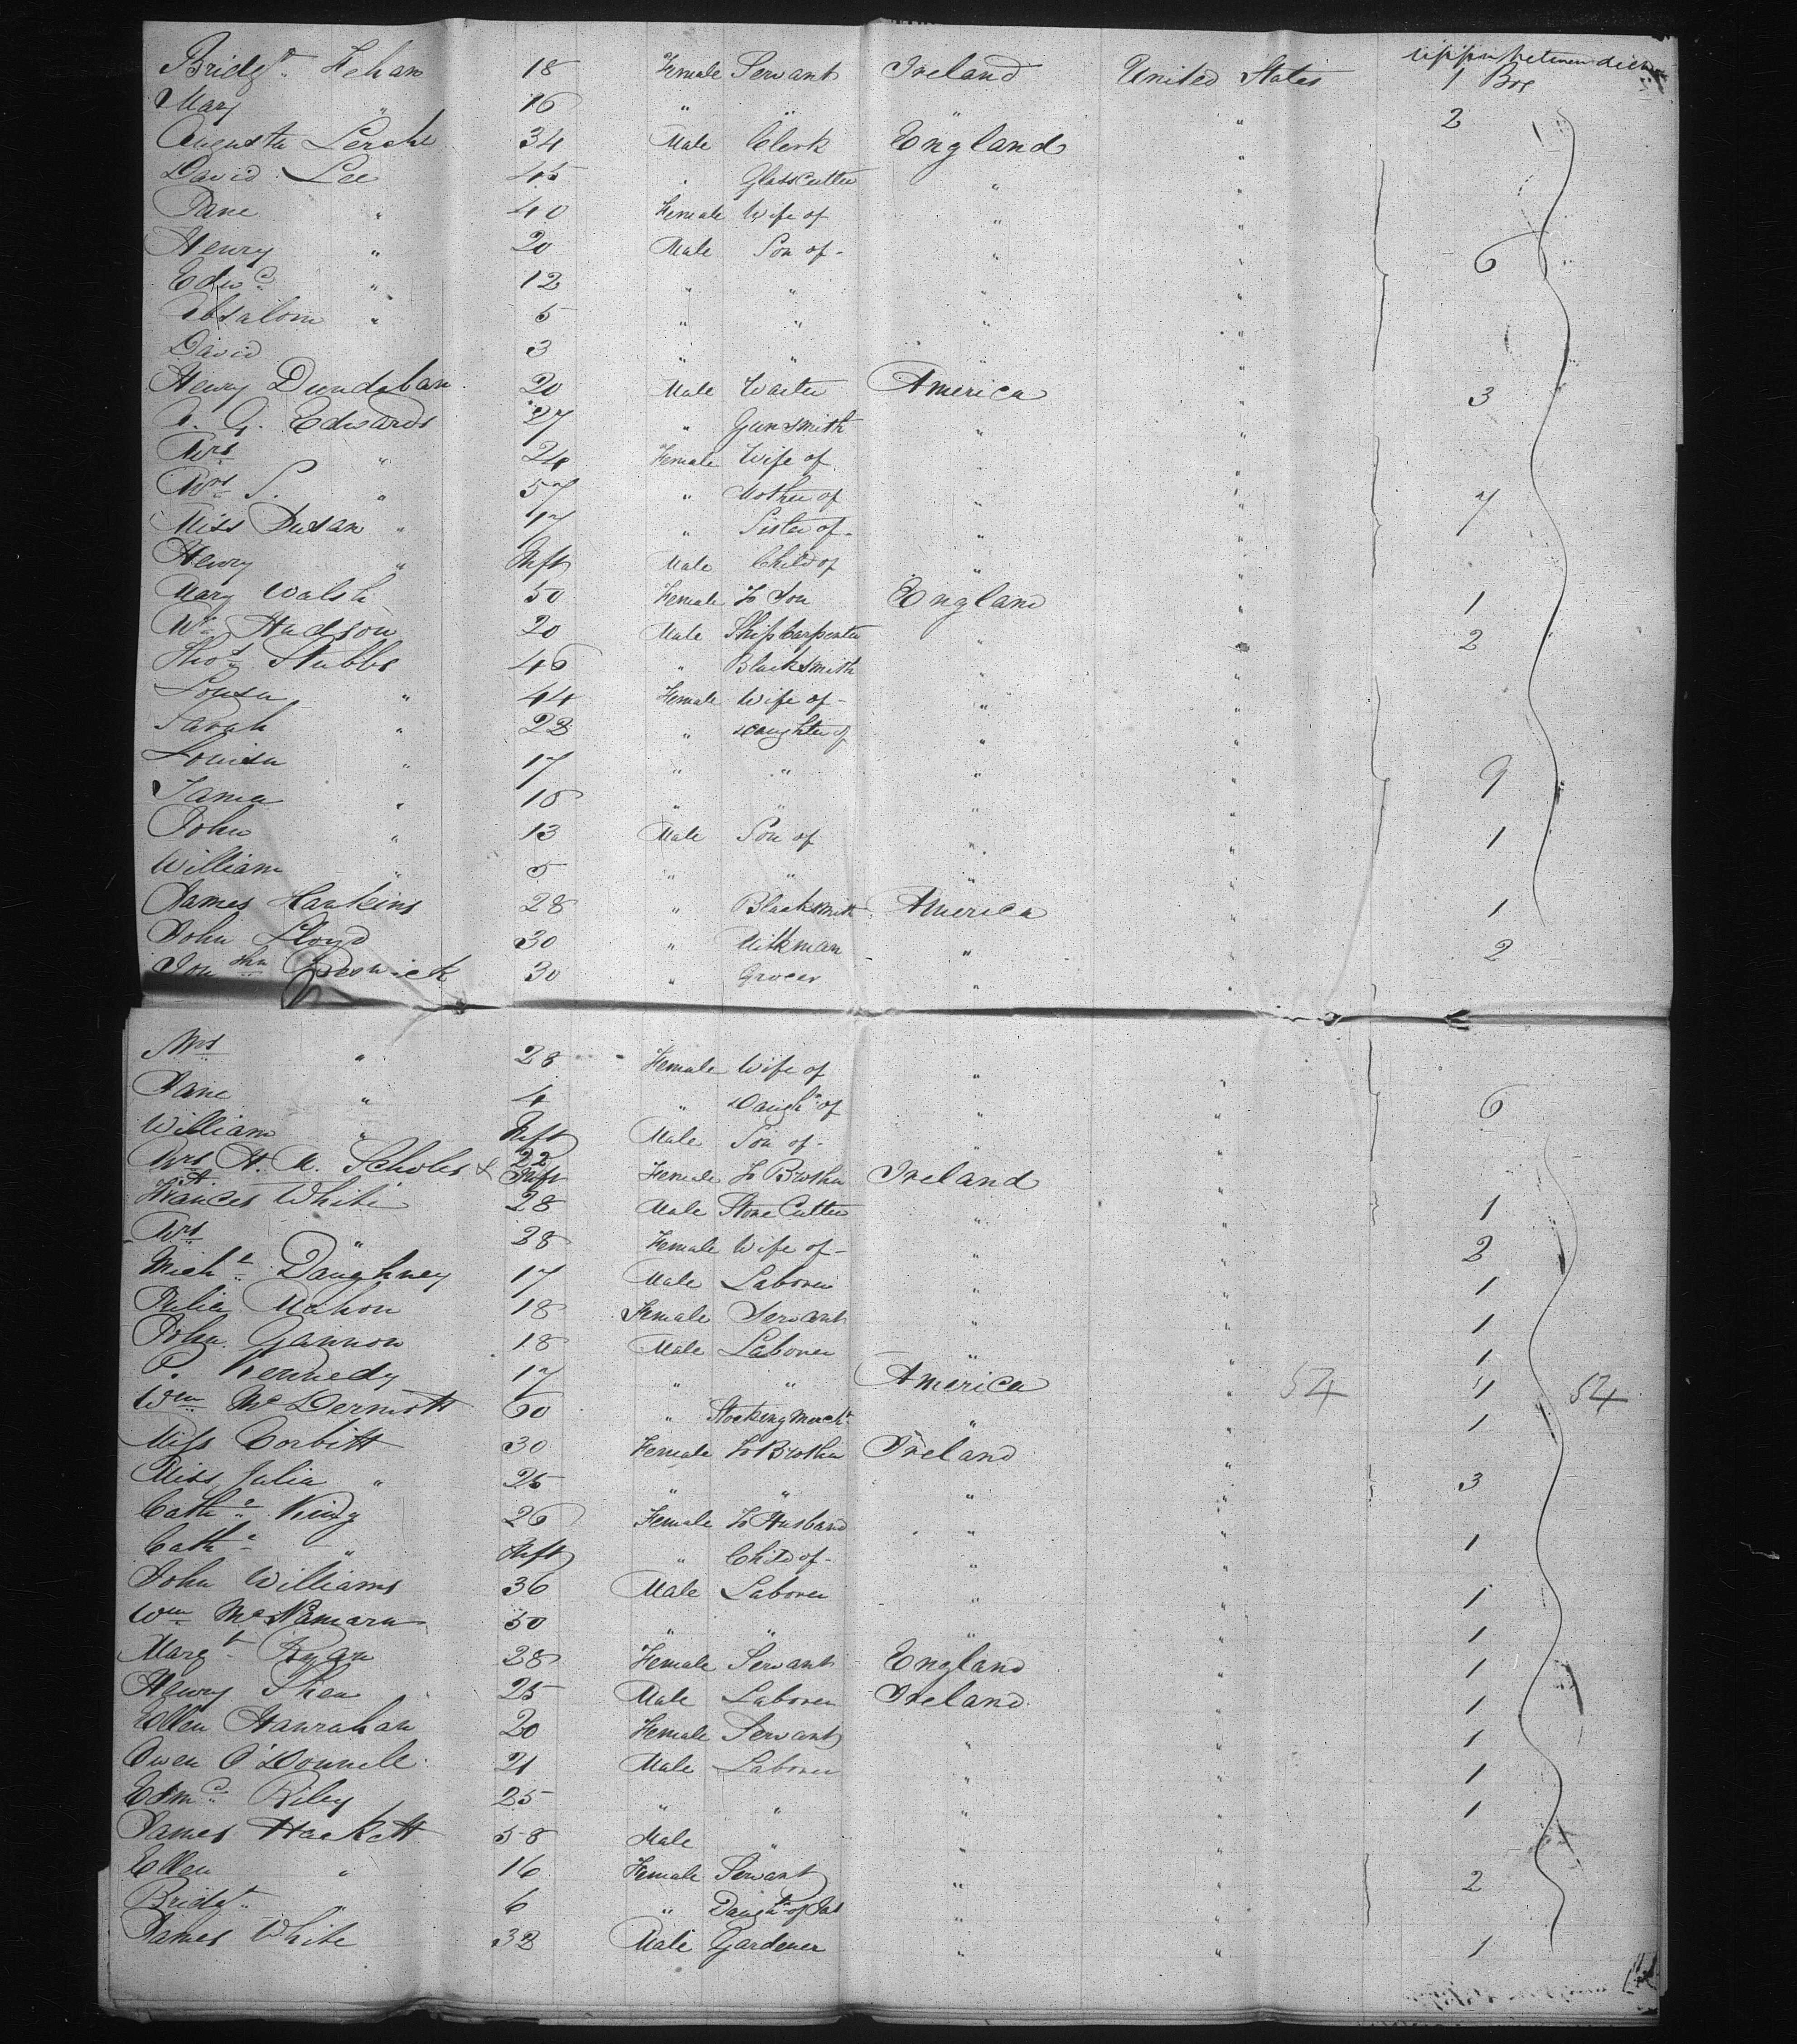 upper between decks
Bridgt. Fehan 18 Female Servant Ireland United States 1 Box
Mary " 16 " " " " 2
Augusta Lerche 34 Male Clerk England "
David Lee 45 " Glass Cutter " "
Jane " 40 Female Wife of " "
Henry " 20 Male Son of - " " 6
Edwd. " 12 " " " "
Absalom " 5 " " " "
David 3 " " " "
Henry Dundaban 20 Male Waiter America " 3
A. G. Edwards 27 " Gunsmith " "
Mrs " 24 Female Wife of "
Mrs S. " 57 " Mother of " " 7
Miss Susan " 17 " Sister of - " "
Henry " Inft Male Child of " "
Mary Walsh 50 Female To Son England " 1
Wm. Hudson 20 Male Ship Carpenter " " 2
Thos. Stubbs 46 " Blacksmith " "
Louisa " 44 Female Wife of - " "
Sarah " 22 " Daughter of " "
Louisa " 17 " " " " 9
Jama " 15 " " " "
John " 13 Male Son of " " 1
William " 5 " " " "
James Harkins 28 " Blacksmith America " 1
John Lloyd 30 " Milkman " " 2
Jonthn Preswick 30 " Grocer " "
Mrs " 28 Female Wife of " "
Jane " 4 " Daughr. of " " 6
William " Inft Male Son of - " "
Mrs H. A. Scholes & 22 Inft Female To Brother Ireland "
Frances White 28 Male Stone Cutter " " 1
Mrs " 28 Female Wife of - " " 2
Michl. Daughney 17 Male Laborer " " 1
Julia Mahon 18 Female Servant " " 1
John Gannon 18 Male Laborer " " 1
P. Kennedy 17 " " America " 54 4 54
Wm. McDermott 60 " Stocking Mercht. " " 1
Miss Corbitt 30 Female To Brother Ireland "
Miss Julia " 25 " " " " 3
Cathe. King 26 Female To Husband " "
Cathe. " Inft " Child of - " " 1
John Williams 36 Male Laborer " " 1
Wm. McNamara 50 " " " " 1
Margt. Ryan 28 Female Servant England " 1
Henry Shea 25 Male Laborer Ireland " 1
Ellen Hanrahan 20 Female Servant " " 1
Owen O'Donnell 21 Male Laborer " " 1
Edmd. Riley 25 " " " " 1
James Hackett 58 Male " " "
Ellen " 16 Female Servant " " 2
Bridgt. " 6 " Daughtr. of Jas " "
James White 32 Male Gardener " " 1